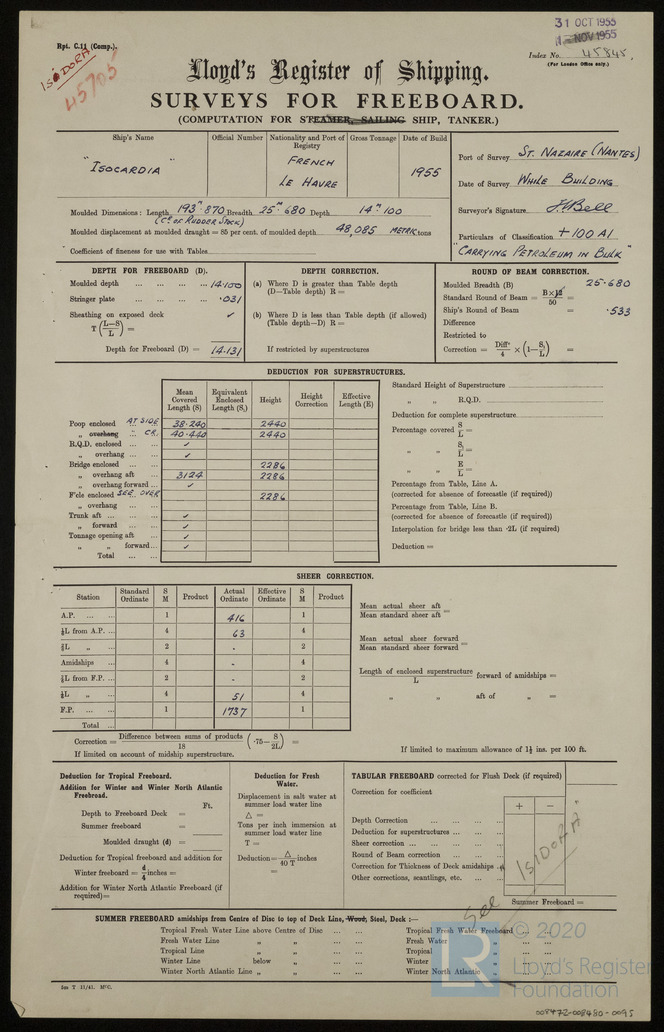 31 OCT 1955
1 - NOV 1955
Rpt. C.11 (Comp.).
ISIDORA
45705
Index No. 45845.
(For London Office only.)
Lloyd's Register of Shipping.
SURVEYS FOR FREEBOARD.
(COMPUTATION FOR STEAMER, SAILING SHIP, TANKER.)
Ship's Name
Official Number
Nationality and Port of Registry
Gross Tonnage
Date of Build
"ISOCARDIA"
FRENCH
LE HAVRE
1955
Port of Survey ST. NAZAIRE (NANTES)
Date of Survey WHILE BUILDING
Surveyor's Signature
Particulars of Classification +100 A1
"CARRYING PETROLEUM IN BULK"
Moulded Dimensions: Length 193m.870 Breadth 25m.680 Depth 14m.100
(CL OF RUDDER STOCK)
Moulded displacement at moulded draught = 85 per cent. of moulded depth 48,085 METRIC tons
Coefficient of fineness for use with Tables
DEPTH FOR FREEBOARD (D).
Moulded depth ... ... ... ... 14.100
Stringer plate ... ... ... ... .031
Sheathing on exposed deck ✓
T (L-S/L) =
Depth for Freeboard (D) = 14.131
DEPTH CORRECTION.
(a) Where D is greater than Table depth
(D—Table depth) R =
(b) Where D is less than Table depth (if allowed)
(Table depth—D) R =
If restricted by superstructures
ROUND OF BEAM CORRECTION.
Moulded Breadth (B) 25.680
Standard Round of Beam = B×12/50 =
Ship's Round of Beam = .533
Difference
Restricted to
Correction = Diffce/4 × (1—S₁/L) =
DEDUCTION FOR SUPERSTRUCTURES.
Mean Covered Length (S)
Equivalent Enclosed Length (S₁)
Height
Height Correction
Effective Length (E)
Poop enclosed AT SIDE 38.240 2440
„ overhang CR. 40.440 2440
R.Q.D. enclosed ... ... ✓
„ overhang ... ... ✓
Bridge enclosed ... ... 2286
„ overhang aft ... 3124 2286
„ overhang forward ... ✓
F'cle enclosed SEE OVER 2286
„ overhang ... ...
Trunk aft ... ... ✓
„ forward ... ... ✓
Tonnage opening aft ... ✓
„ „ forward... ✓
Total ... ...
Standard Height of Superstructure
„ „ R.Q.D.
Deduction for complete superstructure
Percentage covered S/L =
„ „ S₁/L =
„ „ E/L =
Percentage from Table, Line A.
(corrected for absence of forecastle (if required))
Percentage from Table, Line B.
(corrected for absence of forecastle (if required))
Interpolation for bridge less than ·2L (if required)
Deduction =
SHEER CORRECTION.
Station
Standard Ordinate
S M
Product
Actual Ordinate
Effective Ordinate
S M
Product
A.P. ... ... 1 416 1
⅙L from A.P. ... 4 63 4
⅓L „ ... 2 - 2
Amidships ... 4 - 4
⅓L from F.P. ... 2 - 2
⅙L „ ... 4 51 4
F.P. ... ... 1 1737 1
Total ...
Mean actual sheer aft / Mean standard sheer aft =
Mean actual sheer forward / Mean standard sheer forward =
Length of enclosed superstructure / L forward of amidships =
„ „ aft of „ =
Correction = Difference between sums of products / 18 (·75— S/2L) =
If limited on account of midship superstructure.
If limited to maximum allowance of 1½ ins. per 100 ft.
Deduction for Tropical Freeboard.
Addition for Winter and Winter North Atlantic Freeboard.
Ft.
Depth to Freeboard Deck =
Summer freeboard =
Moulded draught (d) =
Deduction for Tropical freeboard and addition for
Winter freeboard = d/4 inches =
Addition for Winter North Atlantic Freeboard (if required)=
Deduction for Fresh Water.
Displacement in salt water at summer load water line
Δ =
Tons per inch immersion at summer load water line
T =
Deduction = Δ/40 T inches
=
TABULAR FREEBOARD corrected for Flush Deck (if required)
Correction for coefficient
+ −
Depth Correction ... ... ... ...
Deduction for superstructures ... ... ...
Sheer correction ... ... ... ...
Round of Beam correction ... ... ...
Correction for Thickness of Deck amidships ...
Other corrections, scantlings, etc. ... ...
Summer Freeboard =
See "ISIDORA"
SUMMER FREEBOARD amidships from Centre of Disc to top of Deck Line, Wood, Steel, Deck :—
Tropical Fresh Water Line above Centre of Disc ... ...
Fresh Water Line „ „ ... ...
Tropical Line „ „ ... ...
Winter Line below „ ... ...
Winter North Atlantic Line „ „ ... ...
Tropical Fresh Water Freeboard ... ...
Fresh Water „ ... ...
Tropical „ ... ...
Winter „ ... ...
Winter North Atlantic „ ... ...
LR
© 2020
Lloyd's Register
Foundation
008472-008480-0095